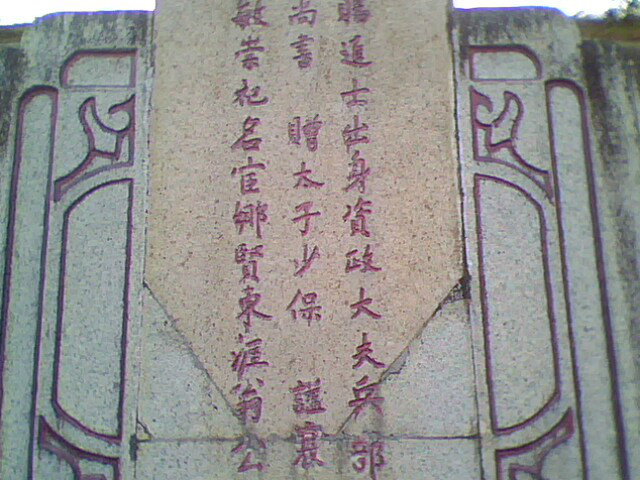 賜進士出身資政大夫兵部
尚書 贈太子少保 謚襄
敏崇祀名宦鄉賢東涯翁公